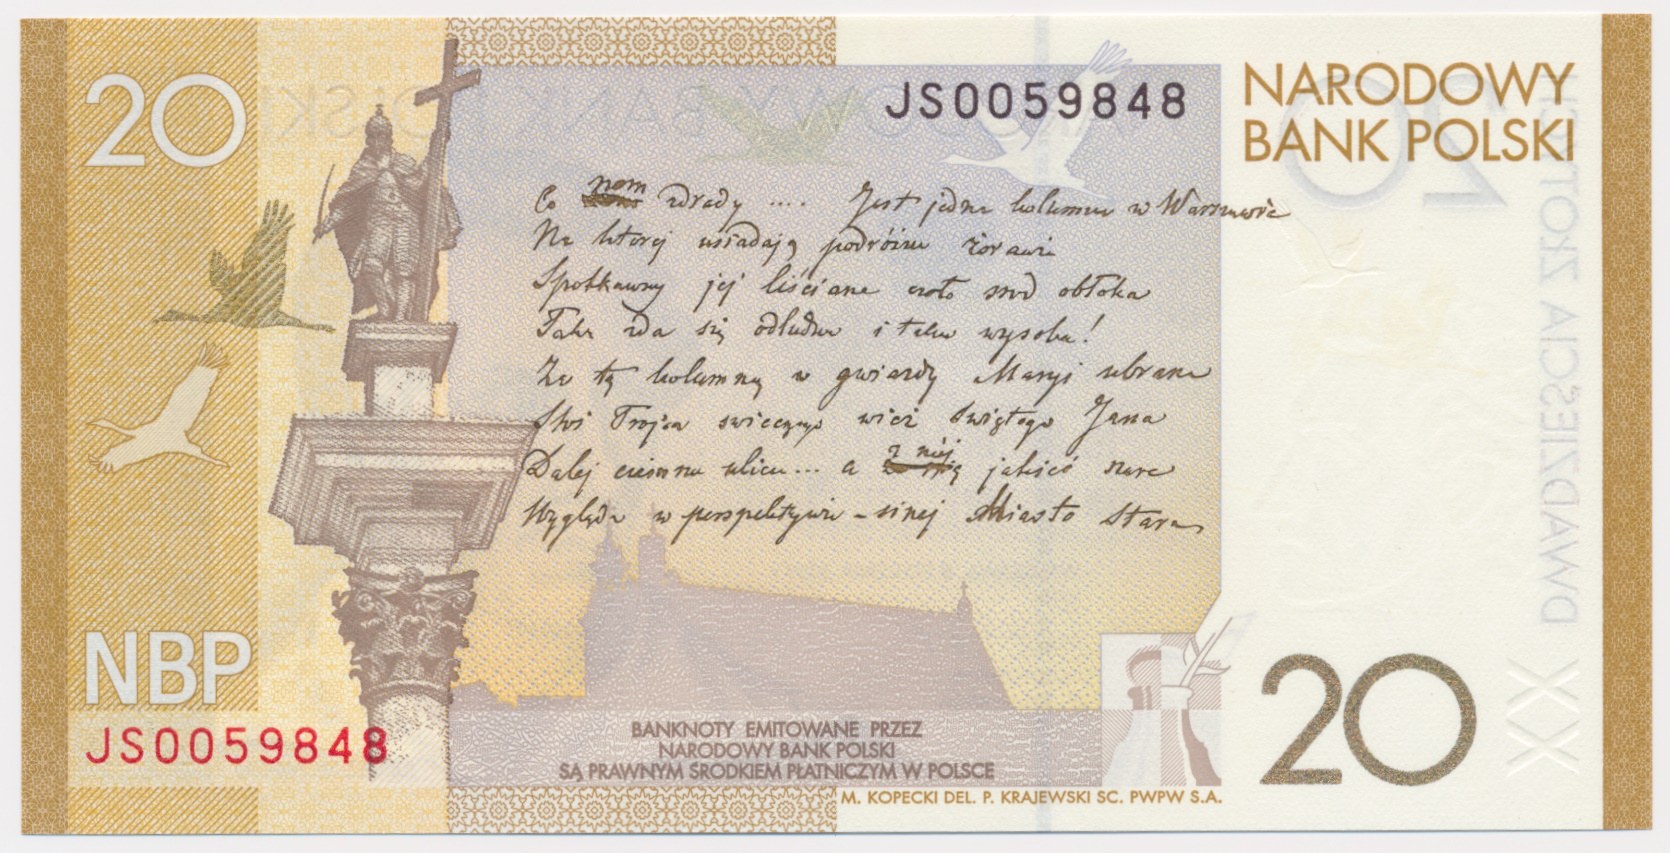 20
JS0059848
NARODOWY
BANK POLSKI
Co nam zdrady .... Jest jedna kolumna w Warszawie
Na ktorej usiadają podróżne żorawie
Spotkawszy jej liściane czoło srod obłoka
Taka zda się odludna i taka wysoka!
Za tą kolumną w gwiazdy Maryi ubrana
Stoi Trojca swiecących wież Swiętego Jana
Dalej ciemna ulica... a z niej jakieś szare
Wygląda w perspektywie – sinej Miasto Stare
DWADZIEŚCIA ZŁOTYCH
XX
NBP
JS0059848
BANKNOTY EMITOWANE PRZEZ
NARODOWY BANK POLSKI
SĄ PRAWNYM ŚRODKIEM PŁATNICZYM W POLSCE
20
M. KOPECKI DEL. P. KRAJEWSKI SC. PWPW S.A.